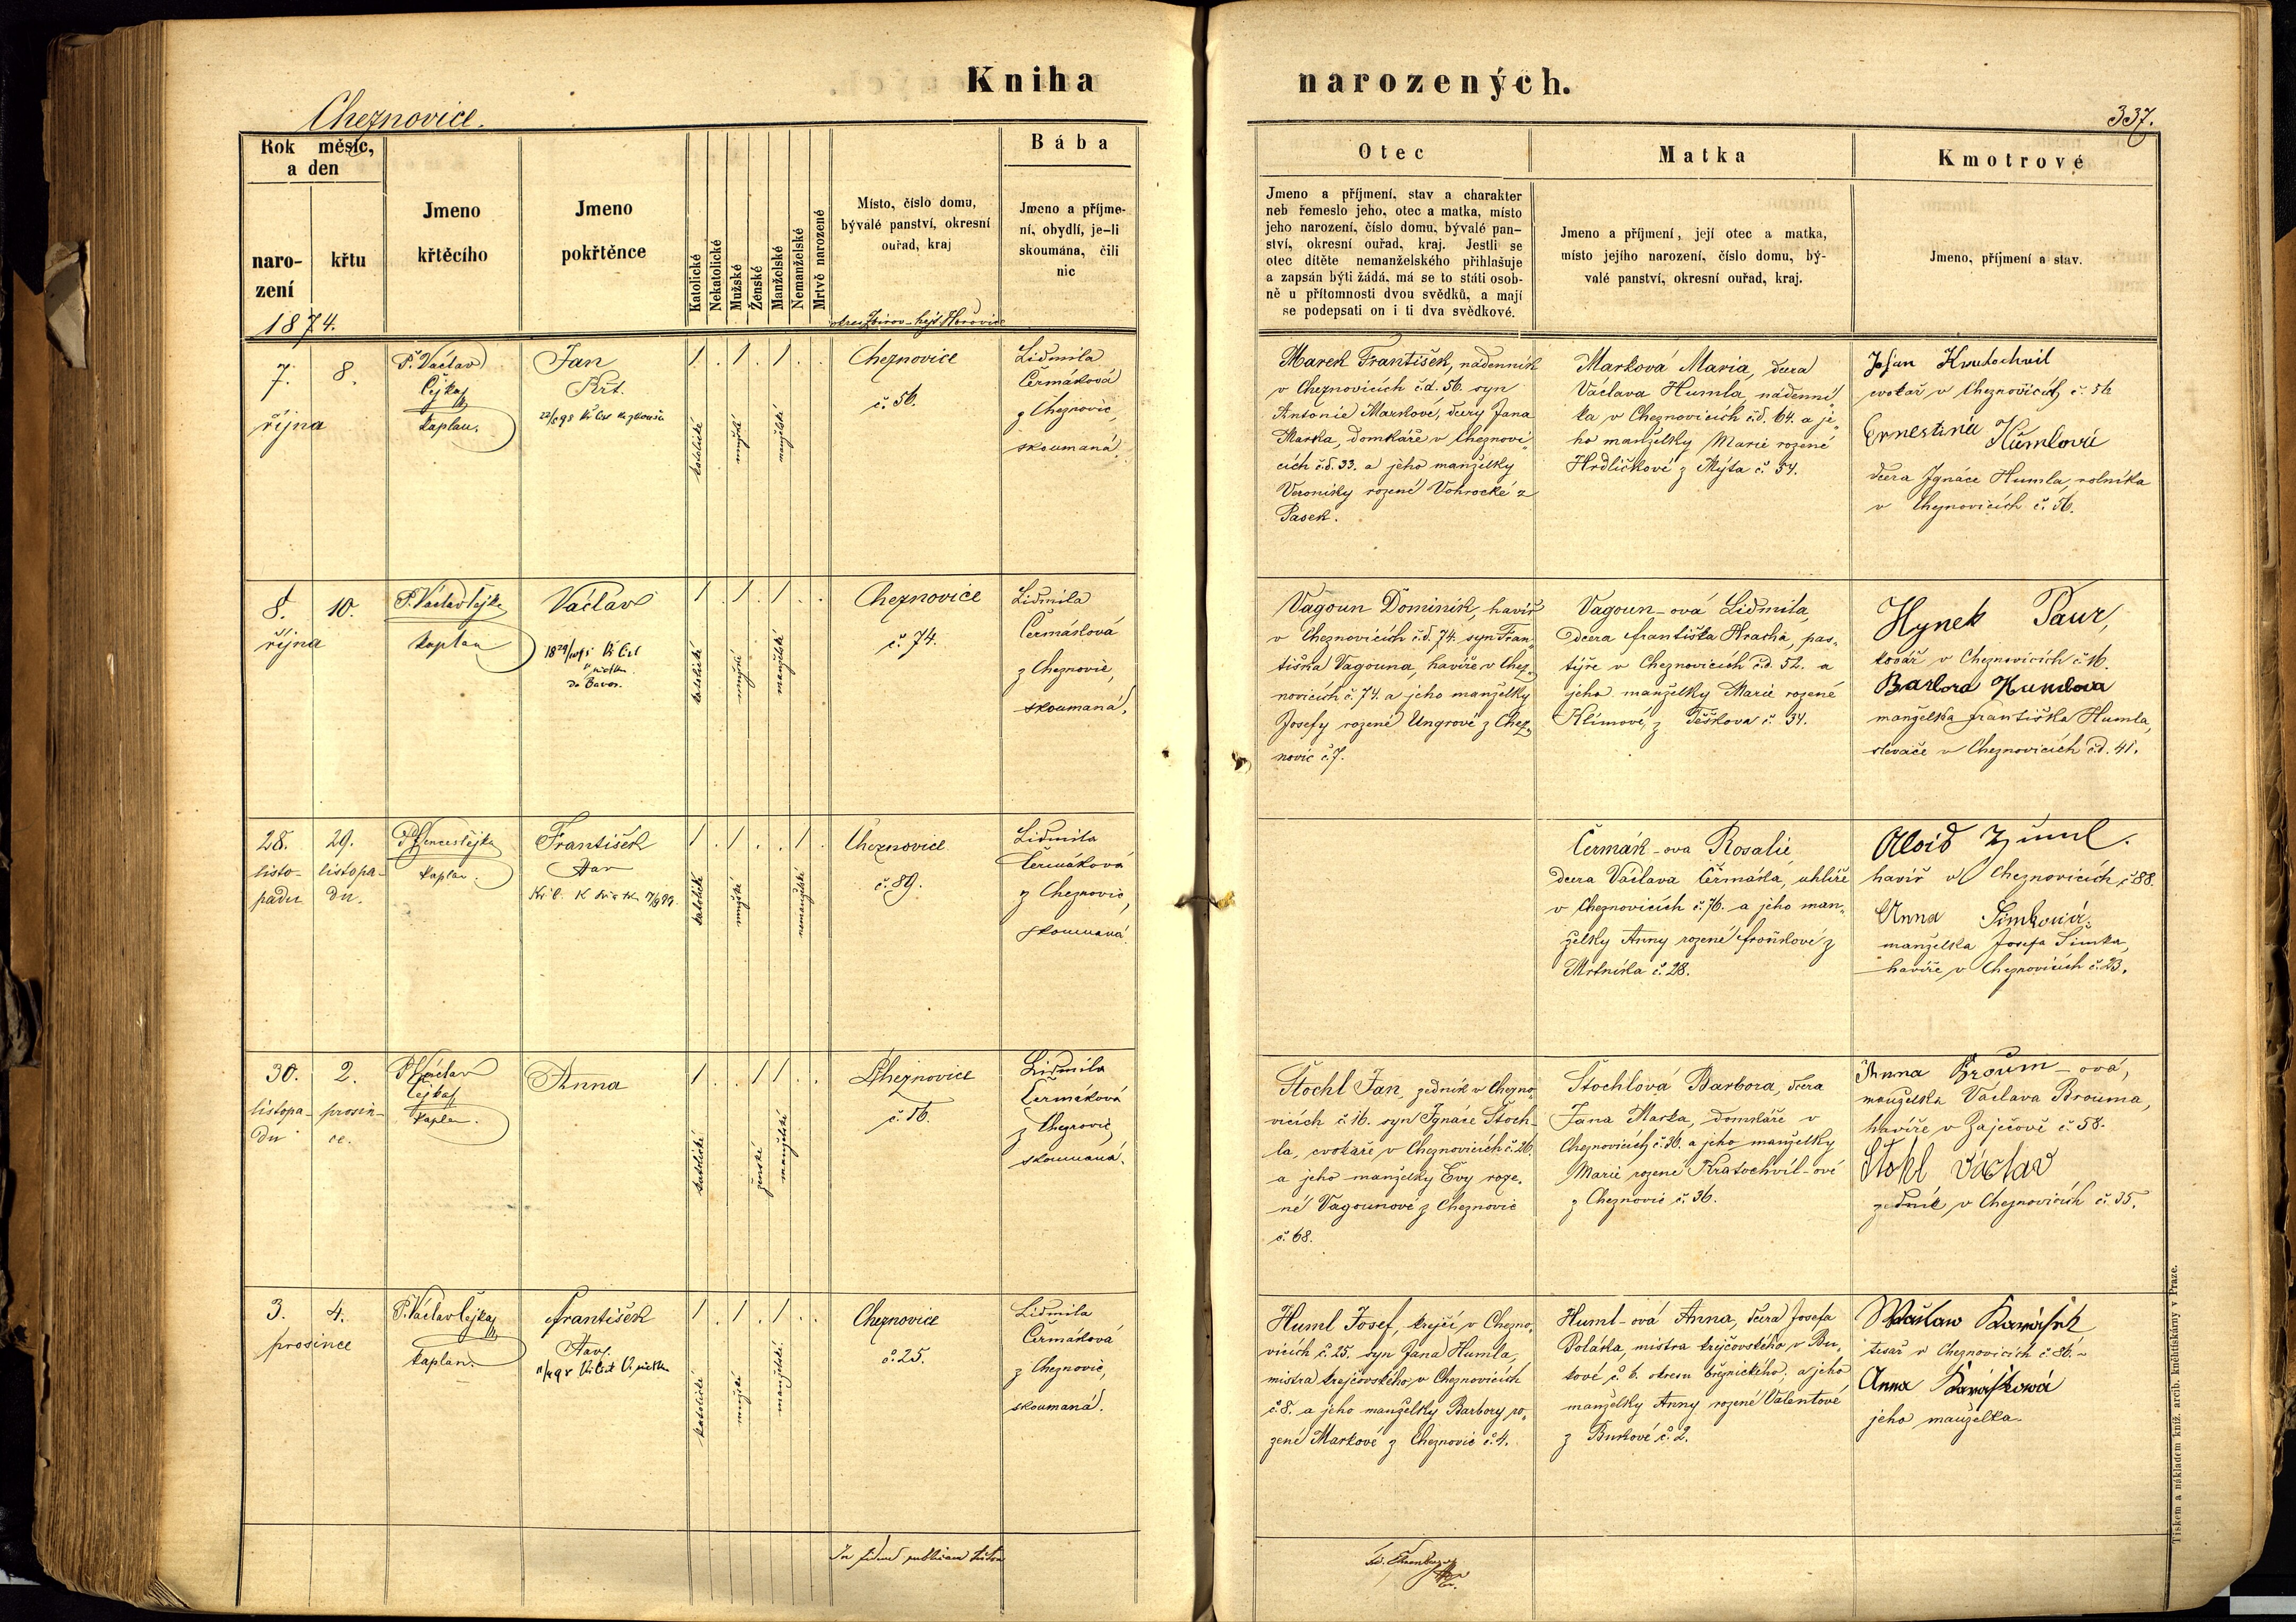 Kniha narozených.
Cheznovice.
337.
Rok měsíc, a den
naro-
zení
křtu
1874.
Jmeno
křtěcího
Jmeno
pokřtěnce
Katolické
Nekatolické
Mužské
Ženské
Manželské
Nemanželské
Mrtvě narozené
Místo, číslo domu,
bývalé panství, okresní
ouřad, kraj
Bába
Jmeno a příjme-
ní, obydlí, je-li
skoumána, čili
nic
Otec
Jmeno a příjmení, stav a charakter
neb řemeslo jeho, otec a matka, místo
jeho narození, číslo domu, bývalé pan-
ství, okresní ouřad, kraj. Jestli se
otec dítěte nemanželského přihlašuje
a zapsán býti žádá, má se to státi osob-
ně u přítomnosti dvou svědků, a mají
se podepsati on i ti dva svědkové.
Matka
Jmeno a příjmení, její otec a matka,
místo jejího narození, číslo domu, bý-
valé panství, okresní ouřad, kraj.
Kmotrové
Jmeno, příjmení a stav.
7. 8.
října
P. Václav
Čejka
kaplan.
Jan
1 . 1 . 1 . .
katolické
mužské
manželské
Cheznovice
č. 56.
Lidmila
Čermáková
z Cheznovic,
skoumaná.
Marek František, nádenník
v Cheznovicích č.d. 56. syn
Antonie Markové, dcery Jana
Marka, domkáře v Cheznovi-
cích č.d. 33. a jeho manželky
Veroniky rozené Vohrocké z
Pasek.
Marková Maria, dcera
Václava Humla, nádenní-
ka v Cheznovicích č.d. 64. a je-
ho manželky Marie rozené
Hrdličkové z Mýta č. 54.
Kratochvil
cvokař v Cheznovicích č. 56
Ernestina Humlová
dcera Ignáce Humla, rolníka
v Cheznovicích č. 56.
8. 10.
října
P. Václav Čejka
kaplan
Václav
1 . 1 . 1 . .
katolické
mužské
manželské
Cheznovice
č. 74.
Lidmila
Čermáková
z Cheznovic,
skoumaná.
Vagoun Dominik, havíř
v Cheznovicích č.d. 74. syn Fran-
tiška Vagouna, havíře v Chez-
novicích č. 74. a jeho manželky
Josefy rozené Ungrové z Chez-
novic č. 7.
Vagoun-ová Lidmila,
dcera Františka Hracha, pas-
týře v Cheznovicích č.d. 52. a
jeho manželky Marie rozené
Klímové, z Těškova č. 34.
Hynek Paur,
kovář v Cheznovicích č. 16.
Barbora Humlova
manželka Františka Humla,
slevače v Cheznovicích č.d. 41.
28. 29.
listo- listopa-
padu du.
kaplan.
František
1 . 1 . . 1 .
katolické
mužské
nemanželské
Cheznovice
č. 89.
Lidmila
Čermáková
z Cheznovic,
skoumaná.
Čermák-ova Rosalie
dcera Václava Čermáka, uhlíře
v Cheznovicích č. 76. a jeho man-
želky Anny rozené Froňkové z
Mrtníka č. 28.
Aloid Huml.
havíř v Cheznovicích č. 88.
Anna Šimková.
manželka Josefa Šimka,
havíře v Cheznovicích č. 23.
30. 2.
listopa- prosin-
du ce.
P. Václav
Čejka
kaplan.
Anna
1 . . 1 1 . .
katolické
ženské
manželské
Cheznovice
č. 16.
Lidmila
Čermáková
z Cheznovic,
skoumaná.
Štochl Jan, zedník v Chezno-
vicích č. 16. syn Ignáce Štoch-
la, cvokaře v Cheznovicích č. 26.
a jeho manželky Evy roze-
né Vagounové z Cheznovic
č. 68.
Štochlová Barbora, dcera
Jana Marka, domkáře v
Cheznovicích č. 36. a jeho manželky
Marie rozené Kratochvíl-ové
z Cheznovic č. 36.
Anna Broum-ová,
manželka Václava Brouma,
havíře v Zaječově č. 58.
Štohl Václav
zedník v Cheznovicích č. 35.
3. 4.
prosince
P. Václav Čejka
kaplan.
František
1 . 1 . 1 . .
katolické
mužské
manželské
Cheznovice
č. 25.
Lidmila
Čermáková
z Cheznovic,
skoumaná.
Huml Josef, krejčí v Chezno-
vicích č. 25. syn Jana Humla,
mistra krejčovského v Cheznovicích
č. 8. a jeho manželky Barbory ro-
zené Markové z Cheznovic č. 4.
Huml-ová Anna, dcera Josefa
Poláka, mistra krejčovského v Bu-
kové č. 6. okresu březnického, a jeho
manželky Anny rozené Valentové
z Bukové č. 2.
Karásek
tesař v Cheznovicích č. 86.
Anna Karásková
jeho manželka
In fidem publicam
Tiskem a nákladem kníž. arcib. knihtiskárny v Praze.